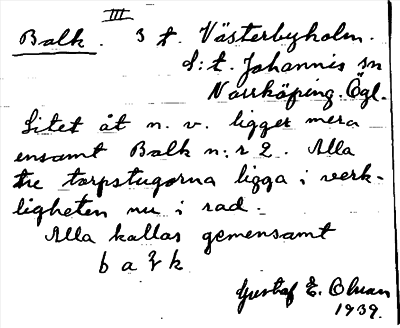 III
Balk. 3 t. Västerbyholm.
S:t. Johannis sn
Norrköping. Ögl.
Litet åt n. v. ligger mera
ensamt Balk n:r 2. Alla
tre torpstugorna ligga i verk-
ligheten nu i rad.
Alla kallas gemensamt
Gustaf E. Olsson
1939.